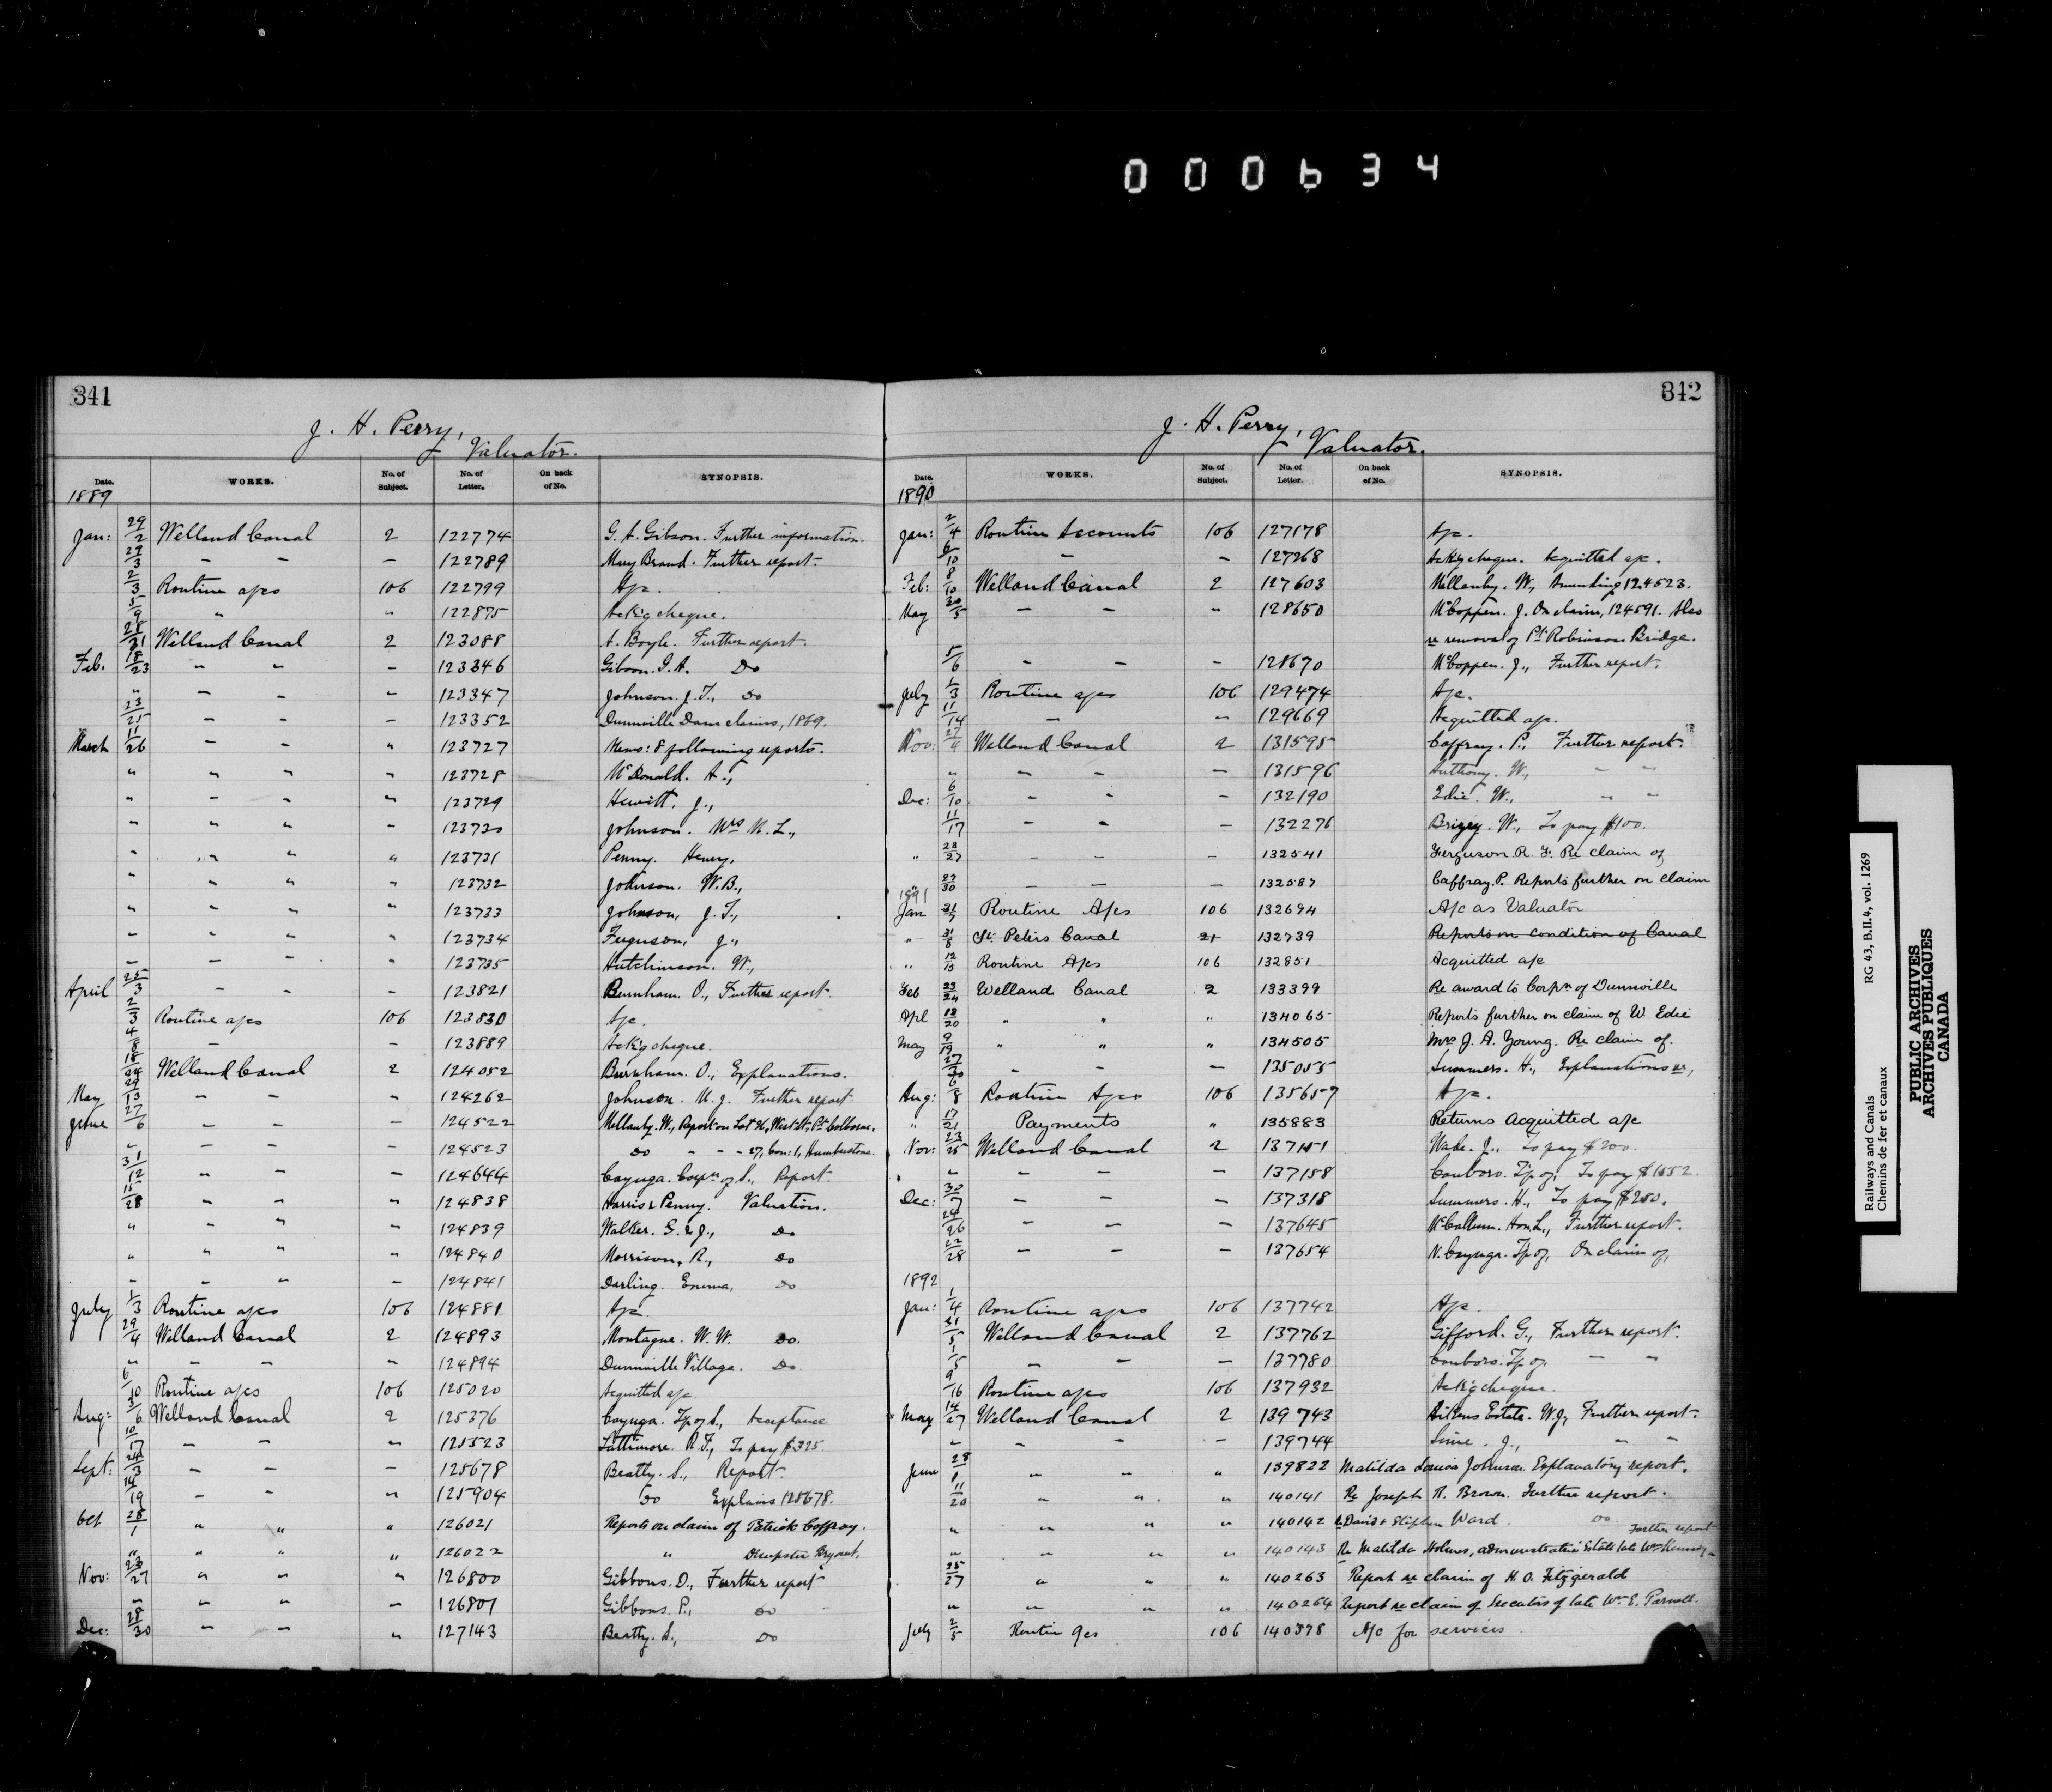 000634
341
J. H. Perry,
Valuator.
Date. WORKS. No. of Subject. No. of Letter. On back of No. SYNOPSIS.
1889
Jan: 29/2 Welland Canal 2 122774 G. A. Gibson. Further information.
29/3 – – – 122789 Mary Brand. Further report.
2/3 Routine a/cs 106 122799 A/c.
5/9 " " 122875 Ack'g cheque.
28/31 Welland Canal 2 123088 A. Boyle. Further report.
Feb. 18/23 " " – 123346 Gibson. G. A. Do
" – – " 123347 Johnson. J. T., Do
23/25 – – – 123352 Dunnville Dam claims, 1869.
March 11/26 – – " 123727 Memo: 8 following reports.
" " " " 123728 McDonald. A.,
" " – " 123729 Hewitt. J.,
" " " – 123730 Johnson. Mrs M. L.,
" " " " 123731 Penny. Henry,
" " " " 123732 Johnson. W. B.,
" " " " 123733 Johnson, J. T.,
– – " " 123734 Ferguson, J.,
– – – " 123735 Hutchinson. W.,
April 25/3 – – – 123821 Burnham. O., Further report.
2/3 Routine a/cs 106 123830 A/c.
4/8 – – 123889 Ack'g cheque.
18/24 Welland Canal 2 124052 Burnham. O., Explanations.
May 29/13 – – – 124262 Johnson. M. J. Further report.
June 27/6 – – – 124522 Mellanby. W., Report on Lot 26, West St, Pt Colborne.
" – – – 124523 Do " – – 27, Con: 1, Humberstone.
31/12 " – – 124644 Cayuga. Corpn of S., Report.
15/28 – – " 124838 Harris & Penny. Valuation.
" " " " 124839 Walker. G. & J., Do
" " " " 124840 Morrison, R., Do
– " " – 124841 Darling. Emma, Do
July 1/3 Routine a/cs 106 124881 A/c.
29/4 Welland Canal 2 124893 Montague. W. W. Do.
" – – " 124894 Dunnville Village. Do.
6/10 Routine a/cs 106 125020 Acquitted a/c
Aug: 3/6 Welland Canal 2 125376 Cayuga. Tp of S., Acceptance
10/17 – – " 125523 Lattimore. R. F., To pay $325.
Sept: 24/3 – – – 125678 Beatty. S., Report.
14/19 – – " 125904 Do Explains 125678.
Oct 28/1 " " " 126021 Reports on claim of Patrick Caffray.
" " " " 126022 " Dempster Bryant,
Nov: 23/27 " " " 126800 Gibbons. D., Further report
" " " – 126801 Gibbons. P., Do
Dec: 28/30 – – " 127143 Beatty. S., Do
342
J. H. Perry,
Valuator.
Date. WORKS. No. of Subject. No. of Letter. On back of No. SYNOPSIS.
1890
Jan: 2/4 Routine Accounts 106 127178 A/c.
6/10 – – 127268 Ack'g cheque. Acquitted a/c.
Feb: 8/10 Welland Canal 2 127603 Mellanby. W., Amending 124523.
May 30/5 – – " 128650 McCoppen. J. On claim, 124591. Also
re removal of Pt Robinson Bridge.
5/6 – – – 128670 McCoppen. J., Further report.
July 1/3 Routine a/cs 106 129474 A/c.
11/14 – " 129669 Acquitted a/c.
Nov: 27/4 Welland Canal 2 131595 Caffray. P., Further report.
" – – – 131596 Anthony. W., – "
Dec: 6/10 – – – 132190 Edie. W., " "
11/17 – – – 132276 Brizey. W., To pay $100.
" 23/27 – – – 132541 Ferguson. R. F. Re claim of
27/30 – – – 132587 Caffray. P. Reports further on claim
1891
Jan 31/7 Routine A/cs 106 132694 A/c as Valuator
" 31/8 St. Peters Canal 21 132739 Reports on condition of Canal
" 12/15 Routine A/cs 106 132851 Acquitted a/c
Feb 23/24 Welland Canal 2 133399 Re award to Corpn of Dunnville
Apl 18/20 " " " 134065 Reports further on claim of W. Edie
May 9/19 " " " 134505 Mrs J. A. Young. Re claim of.
27/30 – – – 135055 Summers. H., Explanations re,
Aug: 6/8 Routine A/cs 106 135657 A/c.
" 17/21 Payments " 135883 Returns Acquitted a/c
Nov: 23/25 Welland Canal 2 137151 Wade. J., To pay $200.
" – – – 137158 Canboro. Tp of, To pay $1652.
Dec: 30/7 – – – 137318 Summers. H., To pay $280.
24/26 – – – 137645 McCallum. Hon. L., Further report.
22/28 – – – 137654 N. Cayuga. Tp of, On claim of,
1892
Jan: 1/4 Routine a/cs 106 137742 A/c.
31/5 Welland Canal 2 137762 Gifford. G., Further report.
1/5 – – – 137780 Canboro. Tp of, – "
9/16 Routine a/cs 106 137932 Ack'g cheque.
May 14/27 Welland Canal 2 139743 Aikens Estate. W. J., Further report.
" – – – 139744 Sime. J., – –
June 28/1 " " " 139822 Matilda Louisa Johnson. Explanatory report.
11/20 " " " 140141 Re Joseph R. Brown. Further report.
" " " " 140142 Re David & Stephen Ward. Do
Further report
" " " " 140143 Re Matilda Holmes, administratrix Estate late Wm Kennedy
25/27 " " " 140263 Report re claim of H. O. Fitzgerald
" " " " 140264 Report re claim of Executors of late Wm E. Parnell.
July 2/5 Routine a/cs 106 140378 A/c for services
Railways and Canals RG 43, B.II.4, vol. 1269
Chemins de fer et canaux
PUBLIC ARCHIVES
ARCHIVES PUBLIQUES
CANADA